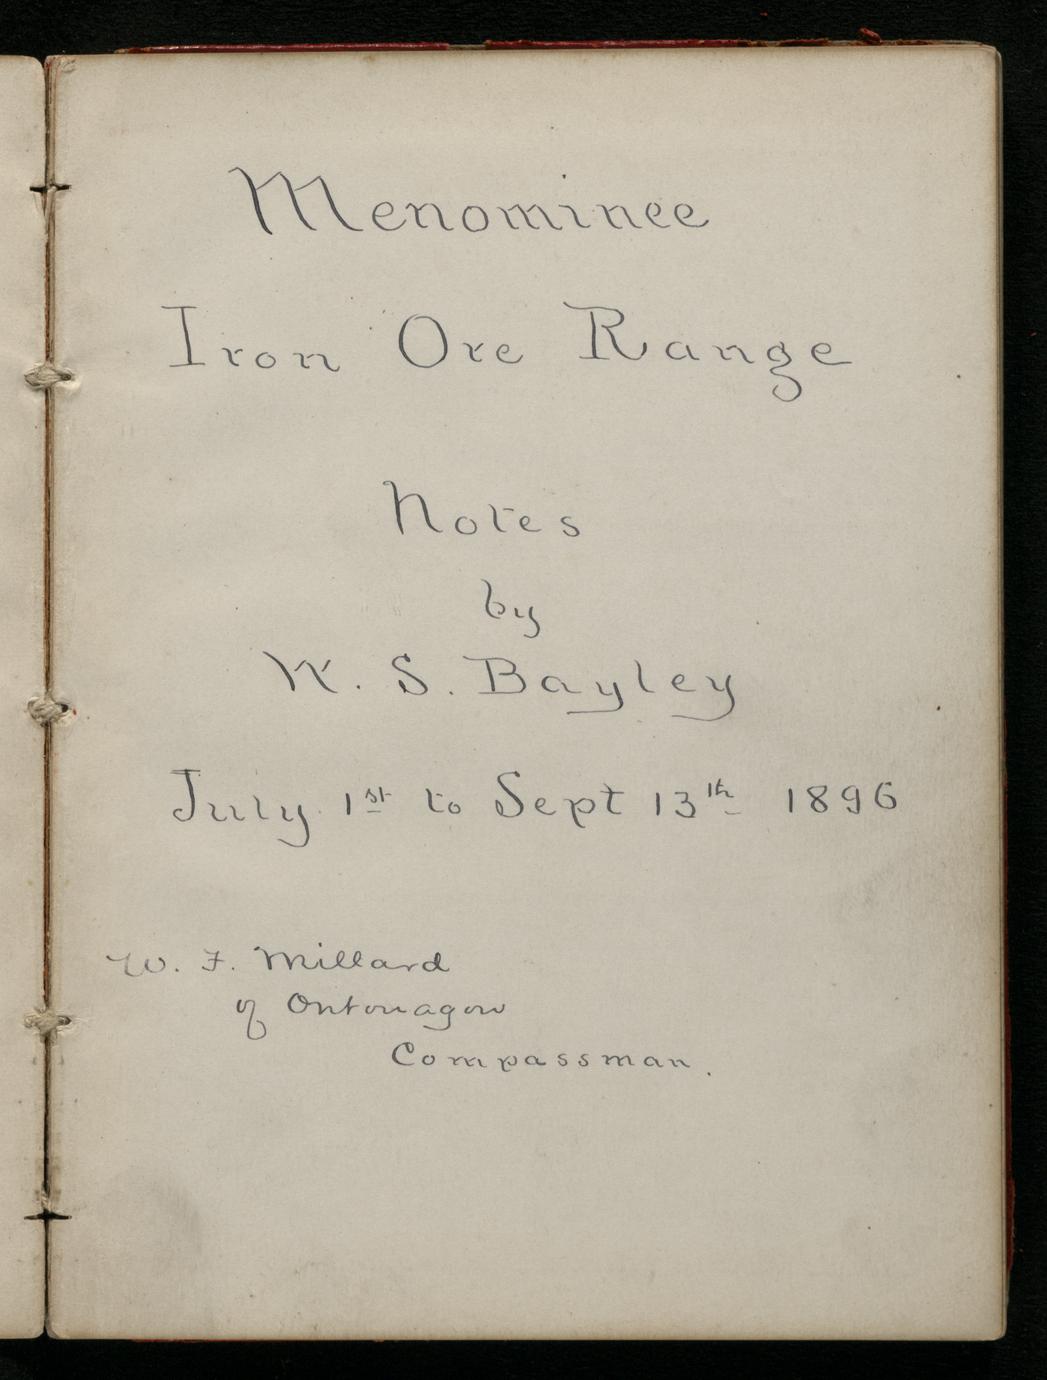 Menominee
Iron Ore Range
Notes
by
W. S. Bayley
July 1st to Sept 13th 1896
W. F. Millard
of Ontonagon
Compassman.